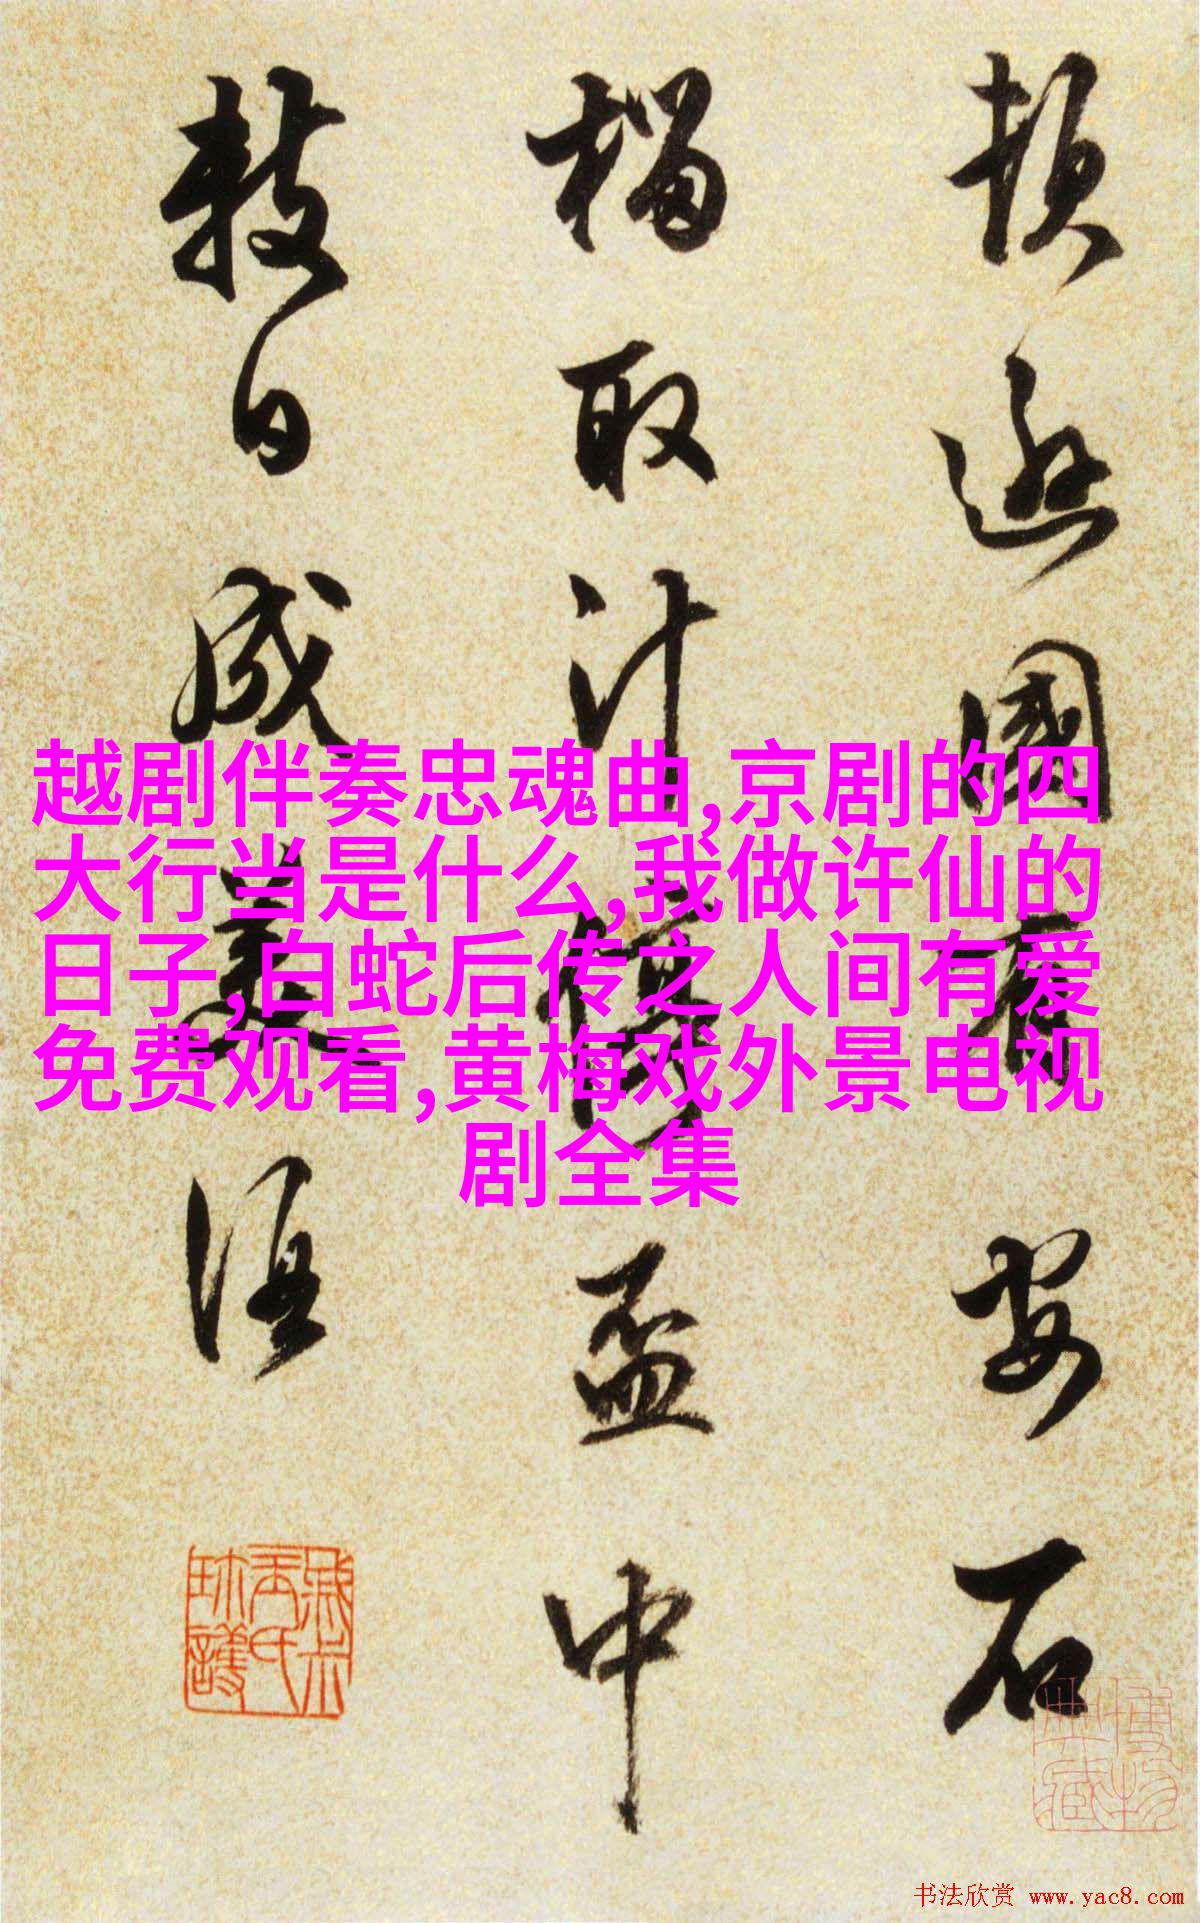 頓遜國有安石
榴取汁停盃中
数日成美酒
越剧伴奏忠魂曲,京剧的四
大行当是什么,我做许仙的
日子,白蛇后传之人间有爱
免费观看,黄梅戏外景电视
剧全集
书法欣赏 www.yac8.com